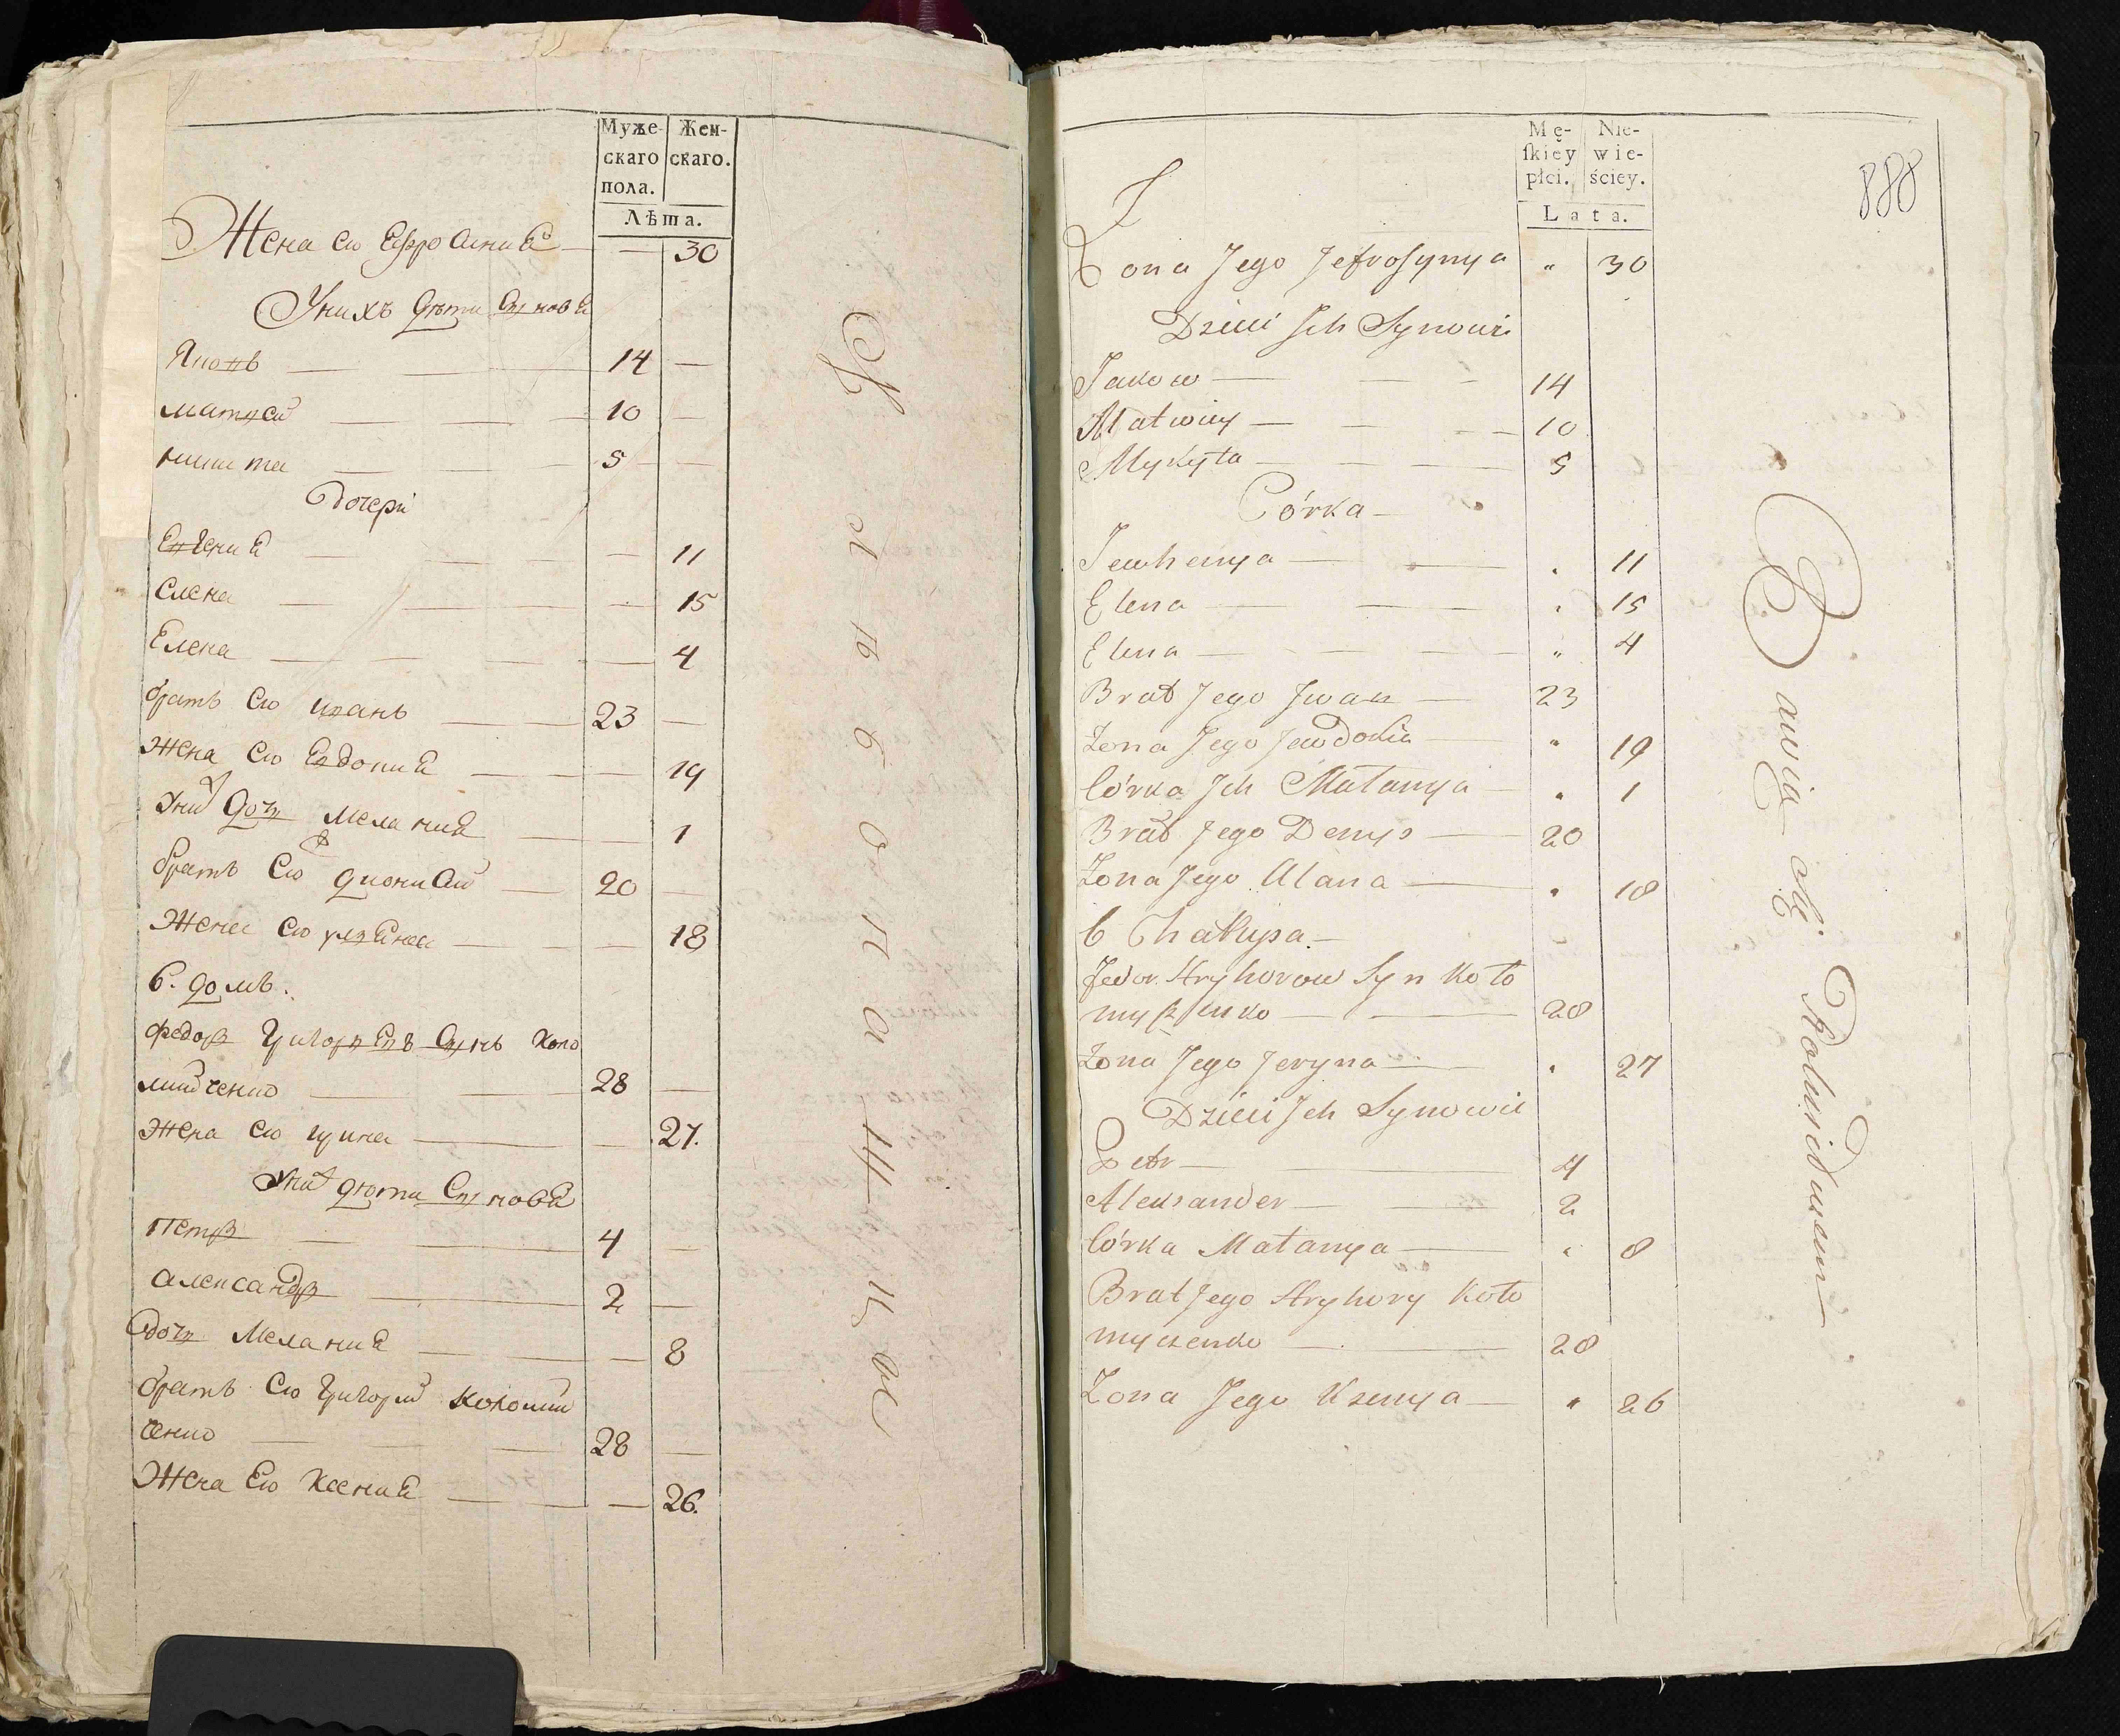 Муже-
скаго
пола.
Жен-
скаго.
Лѣта.
Жена Ею Ефросинiа — 30
Унихъ дѣти Сыновя
Яковъ 14 —
Матвей 10 —
никита 5 —
Дочери
Евгениа — 11
Елена — 15
Елена — 4
братъ Ею иванъ 23 —
Жена Ею Евдокиа — 19
Уних дочь Меланиа — 1
братъ Ею дионисий 20 —
Жена Ею улвяна — 18
6. домъ.
Федоръ Григорвевъ Сынъ Коло
мийченко 28 —
Жена Ею ирина — 27.
Уних дѣти Сыновя
Петръ 4 —
александръ 2 —
дочь Меланиа — 8
братъ Ею Григорий Коломий
ченко 28 —
Жена Ею Ксениа — 26.
888
Mę-
ſkiey
płci.
Nie-
wie-
ściey.
Lata.
Zona Jego Jefrosynya " 30
Dzieci Jch Synowie
Jakow 14
Matwiey 10
Mykyta 5
Córka
Jewhenya " 11
Elena " 15
Elena " 4
Brat Jego Jwan 23
Zona Jego Jewdokia " 19
Córka Jch Małanya " 1
Brat Jego Denys 20
Zona Jego Ulana " 18
6 Chałupa.
Fedor Hryhorow Syn Koło
myyczenko 28
Zona Jego Jeryna " 27
Dzieci Jch Synowie
Petr 4
Alexander 2
Córka Małanya " 8
Brat Jego Hryhory Koło
myczenko 28
Zona Jego Ksenya " 26